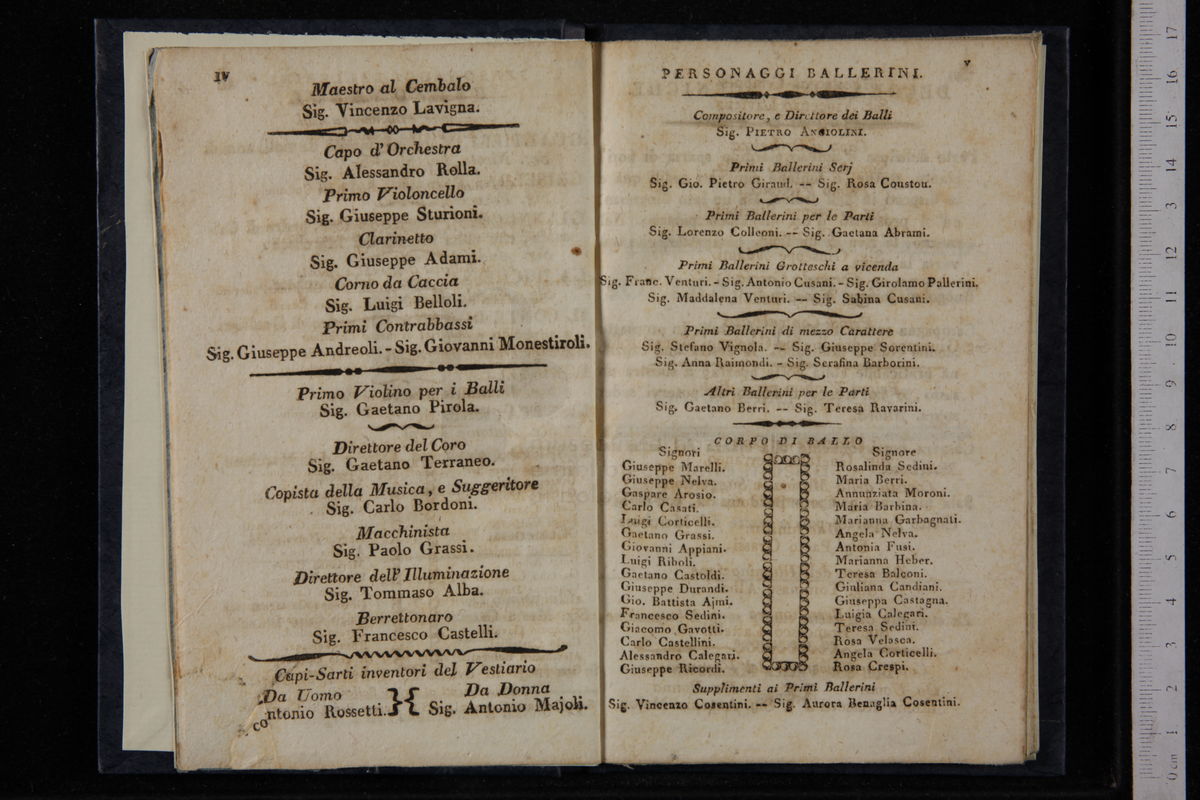 IV
Maestro al Cembalo
Sig. Vincenzo Lavigna.
Capo d'Orchestra
Sig. Alessandro Rolla.
Primo Violoncello
Sig. Giuseppe Sturioni.
Clarinetto
Sig. Giuseppe Adami.
Corno da Caccia
Sig. Luigi Belloli.
Primi Contrabbassi
Sig. Giuseppe Andreoli. - Sig. Giovanni Monestiroli.
Primo Violino per i Balli
Sig. Gaetano Pirola.
Direttore del Coro
Sig. Gaetano Terraneo.
Copista della Musica, e Suggeritore
Sig. Carlo Bordoni.
Macchinista
Sig. Paolo Grassi.
Direttore dell'Illuminazione
Sig. Tommaso Alba.
Berrettonaro
Sig. Francesco Castelli.
Capi-Sarti inventori del Vestiario
Da Uomo Da Donna
ntonio Rossetti. }{ Sig. Antonio Majoli.
co
V
PERSONAGGI BALLERINI.
Compositore, e Direttore dei Balli
Sig. PIETRO ANGIOLINI.
Primi Ballerini Serj
Sig. Gio. Pietro Giraud. -- Sig. Rosa Coustou.
Primi Ballerini per le Parti
Sig. Lorenzo Colleoni. -- Sig. Gaetana Abrami.
Primi Ballerini Grotteschi a vicenda
Sig. Franc. Venturi. - Sig. Antonio Cusani. - Sig. Girolamo Pallerini.
Sig. Maddalena Venturi. -- Sig. Sabina Cusani.
Primi Ballerini di mezzo Carattere
Sig. Stefano Vignola. -- Sig. Giuseppe Sorentini.
Sig. Anna Raimondi. - Sig. Serafina Barborini.
Altri Ballerini per le Parti
Sig. Gaetano Berri. -- Sig. Teresa Ravarini.
CORPO DI BALLO
Signori
Giuseppe Marelli.
Giuseppe Nelva.
Gaspare Arosio.
Carlo Casati.
Luigi Corticelli.
Gaetano Grassi.
Giovanni Appiani.
Luigi Riboli.
Gaetano Castoldi.
Giuseppe Durandi.
Gio. Battista Ajmi.
Francesco Sedini.
Giacomo Gavotti.
Carlo Castellini.
Alessandro Calegari.
Giuseppe Ricordi.
Signore
Rosalinda Sedini.
Maria Berri.
Annunziata Moroni.
Maria Barbina.
Marianna Garbagnati.
Angela Nelva.
Antonia Fusi.
Marianna Heber.
Teresa Balconi.
Giuliana Candiani.
Giuseppa Castagna.
Luigia Calegari.
Teresa Sedini.
Rosa Velasca.
Angela Corticelli.
Rosa Crespi.
Supplimenti ai Primi Ballerini
Sig. Vincenzo Cosentini. -- Sig. Aurora Benaglia Cosentini.
17
16
15
14
13
12
11
10
9
8
7
6
5
4
3
2
1
0 cm